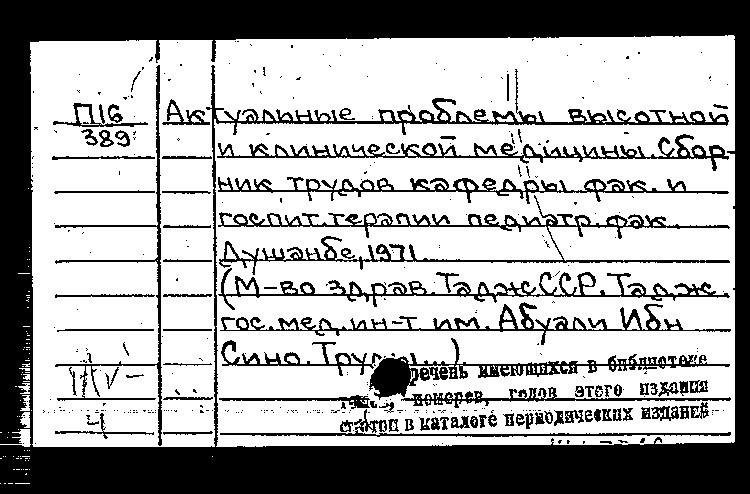 П16
389
Актуальные проблемы высотной
и клинической медицины. Сбор-
ник трудов кафедры фак. и
госпит. терапии педиатр. фак.
Душанбе, 1971.
(М-во здрав. Тадж.ССР. Тадж.
гос. мед. ин-т им. Абуали Ибн
Сино. Труды...)
речень имеющихся в библиотеке
номеров, годов этого издания
смотри в каталоге периодических изданий
4